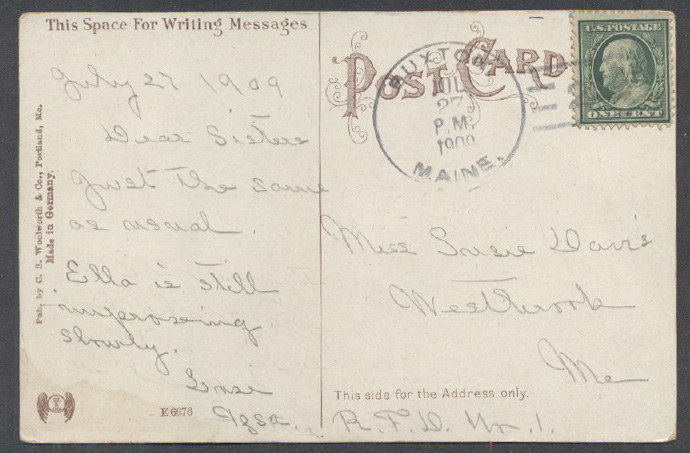 This Space For Writing Messages
July 27 1909
Dear Sister
Just the same
as usual.
Ella is still
improveing
slowly.
Pub. by C. S. Woolworth & Co., Portland, Me.
Made in Germany.
E6676
POST CARD
BUXTON
JUL
27
P.M.
1909
MAINE.
U.S. POSTAGE
ONE CENT
Miss Susie Davis
Westbrook
Me
This side for the Address only.
R.F.D. No. 1.